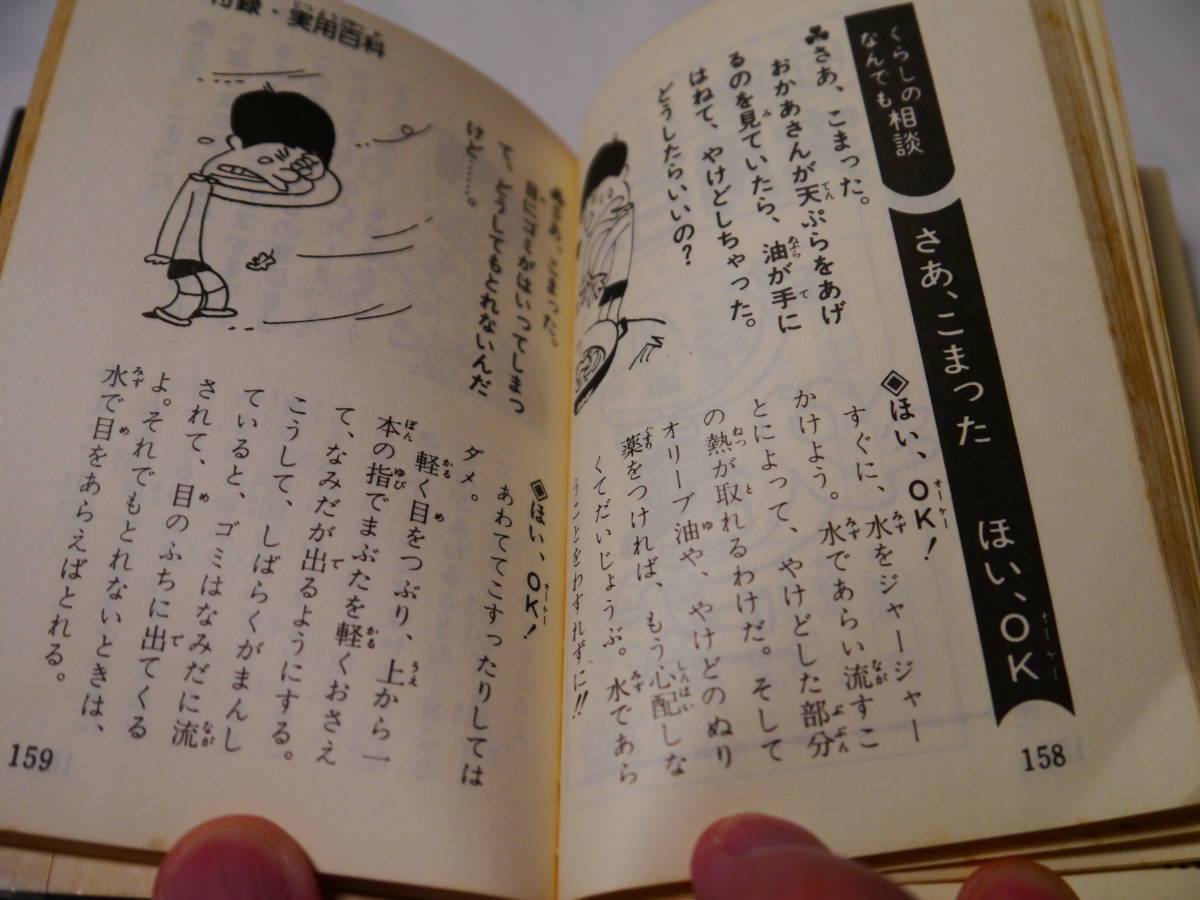 くらしの相談
なんでも
さあ、こまった ほい、OK
オーケー
♣さあ、こまった。
おかあさんが天ぷらをあげ
るのを見ていたら、油が手に
はねて、やけどしちゃった。
どうしたらいいの?
◈ほい、OK!
すぐに、水をジャージャー
かけよう。水であらい流すこ
とによって、やけどした部分
の熱が取れるわけだ。そして
オリーブ油や、やけどのぬり
薬をつければ、もう心配しな
くてだいじょうぶ。水であら
うことをわすれずに!!
158
付録・実用百科
♣さあ、こまった。
目にゴミがはいってしまっ
て、どうしてもとれないんだ
けど……。
◈ほい、OK!
あわててこすったりしては
ダメ。
軽く目をつぶり、上から一
本の指でまぶたを軽くおさえ
て、なみだが出るようにする。
こうして、しばらくがまんし
ていると、ゴミはなみだに流
されて、目のふちに出てくる
よ。それでもとれないときは、
水で目をあらえばとれる。
159